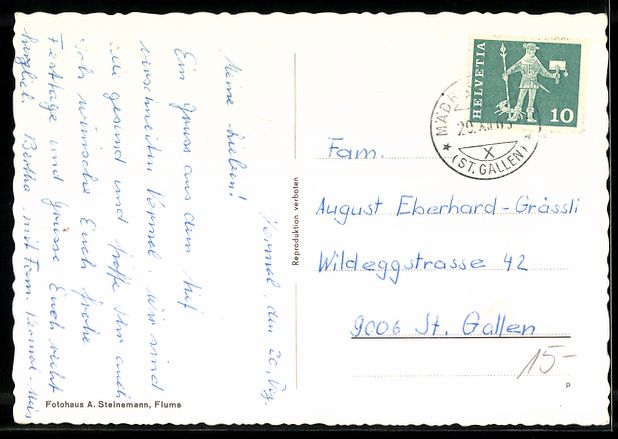 Vermol, den 20. Dez.
Meine Lieben!
Ein Gruss aus dem tief
verschneiten Vermol. Wir sind
alle gesund und hoffe Ihr auch
ich wünsche Euch frohe
Festtage und Grüsse Euch recht
herzlich Bertha mit Fam. Vermol-Mels
Reproduktion verboten
Fotohaus A. Steinemann, Flums
HELVETIA
10
(ST. GALLEN)
X
Fam.
August Eberhard-Grässli
Wildeggstrasse 42
9006 St. Gallen
15-
P